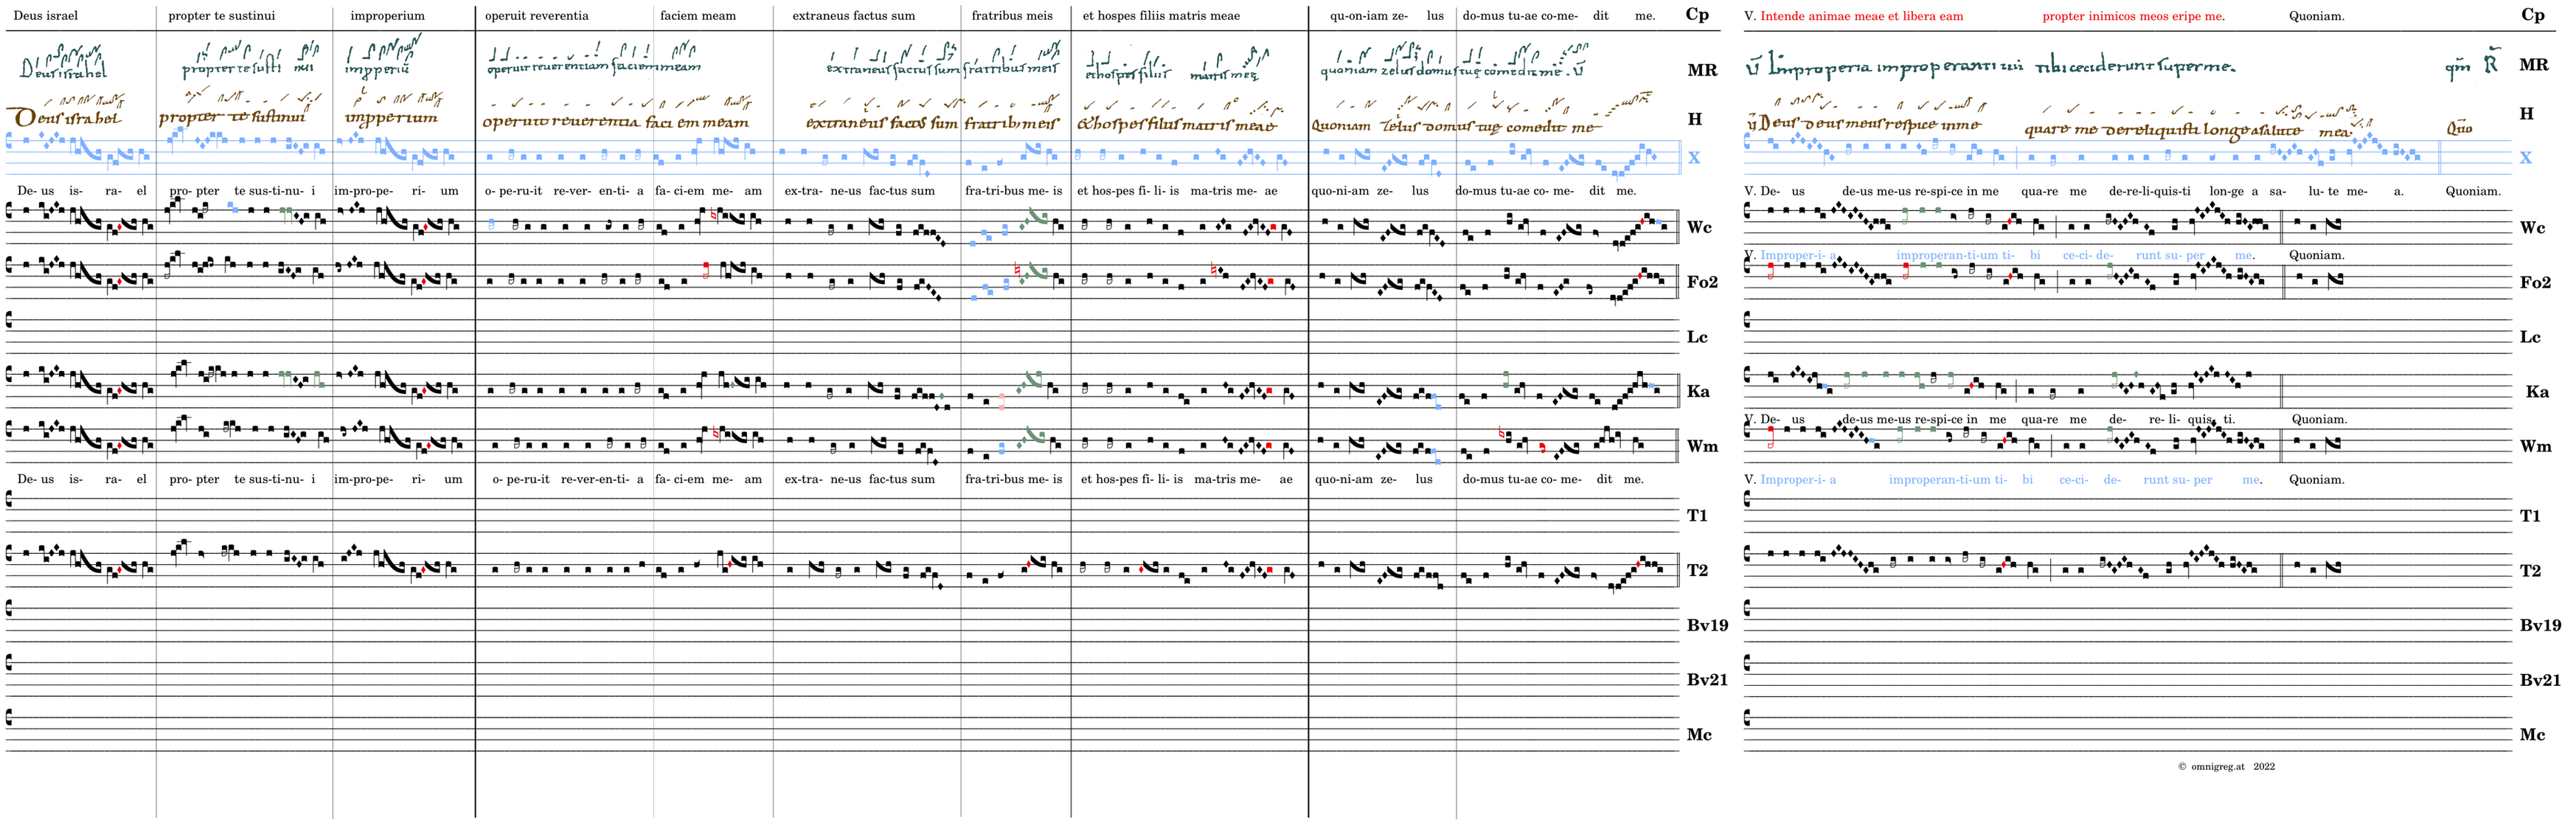 Deus israel propter te sustinui improperium operuit reverentia faciem meam extraneus factus sum fratribus meis et hospes filiis matris meae qu-on-iam ze- lus do-mus tu-ae co-me- dit me. Cp V. Intende animae meae et libera eam propter inimicos meos eripe me. Quoniam. Cp
Deus israhel propter te susti nui impperiu operuit reuerentiam faciem meam extraneus factus sum fratribus meis et hospes filiis matris meę quoniam zelus domus tuę comedit me. V MR V Improperia improperanti tibi ceciderunt super me. qm R MR
Deus israhel propter te sustinui improperium operuit reuerentia faci em meam extraneus factus sum fratrib; meis & hospes filiis matris meae Quoniam zelus domus tuę comedit me H V Deus deus meus respice in me quare me dereliquisti longe a salute mea. Quo H
X X
De- us is- ra- el pro- pter te sus-ti-nu- i im-pro-pe- ri- um o- pe-ru-it re-ver- en-ti- a fa- ci-em me- am ex-tra- ne-us fac-tus sum fra-tri-bus me- is et hos-pes fi- li- is ma-tris me- ae quo-ni-am ze- lus do-mus tu-ae co- me- dit me. V. De- us de-us me-us re-spi-ce in me qua-re me de-re-li-quis-ti lon-ge a sa- lu- te me- a. Quoniam.
Wc Wc
V. Improper-i- a improperan-ti-um ti- bi ce-ci- de- runt su- per me. Quoniam.
Fo2 Fo2
Lc Lc
Ka Ka
V. De- us de-us me-us re-spi-ce in me qua-re me de- re- li- quis- ti. Quoniam.
Wm Wm
De- us is- ra- el pro- pter te sus-ti-nu- i im-pro-pe- ri- um o- pe-ru-it re-ver-en-ti- a fa- ci-em me- am ex-tra- ne-us fac-tus sum fra-tri-bus me- is et hos-pes fi- li- is ma-tris me- ae quo-ni-am ze- lus do-mus tu-ae co- me- dit me. V. Improper-i- a improperan-ti-um ti- bi ce-ci- de- runt su- per me. Quoniam.
T1 T1
T2 T2
Bv19 Bv19
Bv21 Bv21
Mc Mc
© omnigreg.at 2022